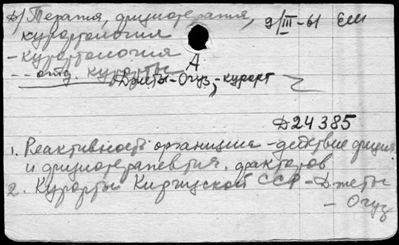 б) Терапия, физиотерапия, 9/III-61 Еми
курортология
- курортология
-- отд. курорты А
Джеты-Огуз, - курорт
Д24385
1. Реактивность организма - действие физич.
и физиотерапевтич. факторов
2. Курорты Киргизской ССР - Джеты
- Огуз